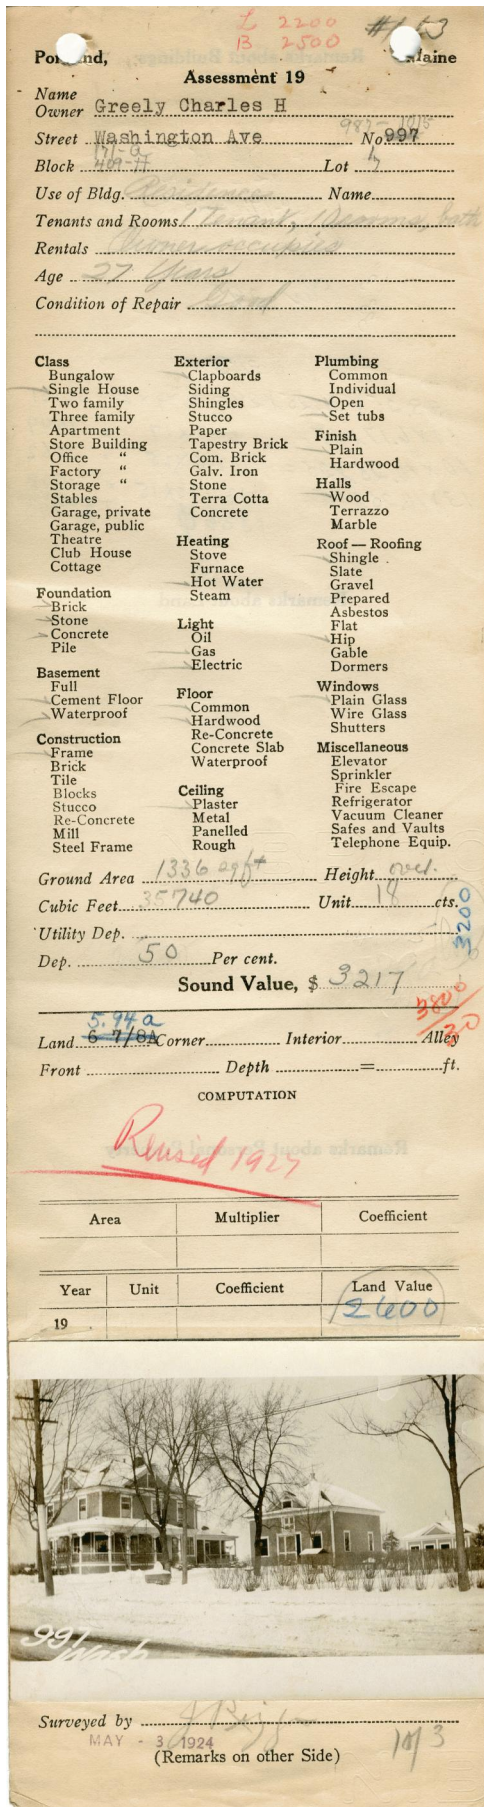 L 2200
B 2500
Portland, Maine
Assessment 19
Name
Owner Greely Charles H
987-1015
Street Washington Ave No 997
171-A
Block 409-A Lot 7
Use of Bldg. Residence Name
Tenants and Rooms 1 Tenant, 10 rooms, bath
Rentals Owner occupies
Age 27 Years
Condition of Repair Good
Class
Bungalow
Single House
Two family
Three family
Apartment
Store Building
Office "
Factory "
Storage "
Stables
Garage, private
Garage, public
Theatre
Club House
Cottage
Foundation
Brick
Stone
Concrete
Pile
Basement
Full
Cement Floor
Waterproof
Construction
Frame
Brick
Tile
Blocks
Stucco
Re-Concrete
Mill
Steel Frame
Exterior
Clapboards
Siding
Shingles
Stucco
Paper
Tapestry Brick
Com. Brick
Galv. Iron
Stone
Terra Cotta
Concrete
Heating
Stove
Furnace
Hot Water
Steam
Light
Oil
Gas
Electric
Floor
Common
Hardwood
Re-Concrete
Concrete Slab
Waterproof
Ceiling
Plaster
Metal
Panelled
Rough
Plumbing
Common
Individual
Open
Set tubs
Finish
Plain
Hardwood
Halls
Wood
Terrazzo
Marble
Roof — Roofing
Shingle
Slate
Gravel
Prepared
Asbestos
Flat
Hip
Gable
Dormers
Windows
Plain Glass
Wire Glass
Shutters
Miscellaneous
Elevator
Sprinkler
Fire Escape
Refrigerator
Vacuum Cleaner
Safes and Vaults
Telephone Equip.
Ground Area 1336 sq ft Height over.
Cubic Feet 35740 Unit 18 cts.
3200
Utility Dep.
Dep. 50 Per cent.
Sound Value, $ 3217
3800/30
5.94 a
Land 6 7/8A Corner Interior Alley
Front Depth = ft.
COMPUTATION
Revised 1927
Area Multiplier Coefficient
Year Unit Coefficient Land Value
19 2600
997 Wash
Surveyed by
MAY - 3 1924
(Remarks on other Side)
1 of 3